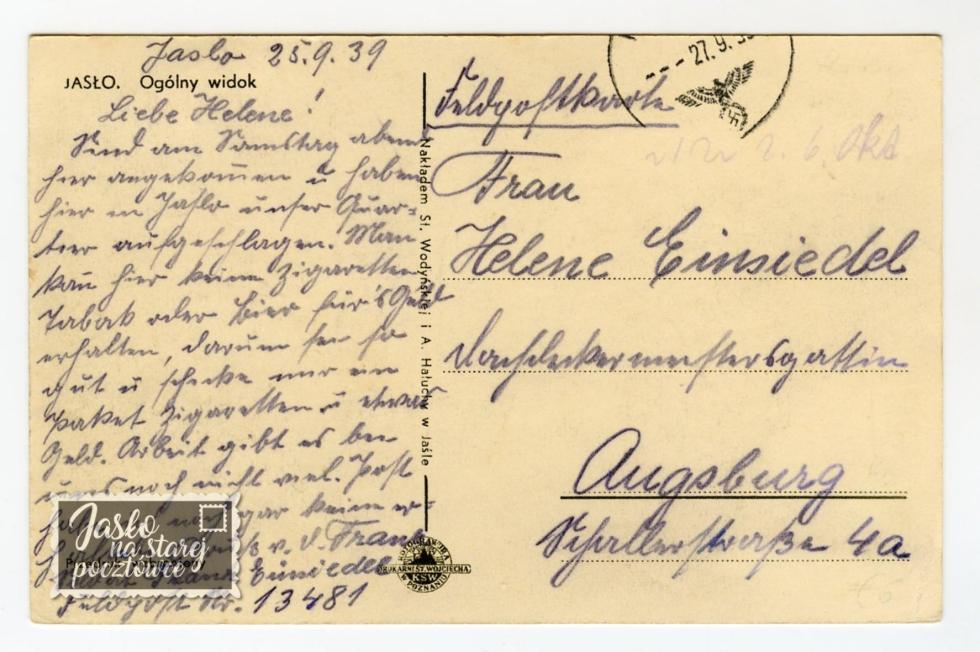 Jaslo 25.9.39
JASŁO. Ogólny widok
Liebe Helene!
Sind am Samstag abend
hier angekom̄en u haben
hier in Jaslo unser Quar=
tier aufgeschlagen. Man
kan hier keine Zigaretten
Tabak oder Bier für's Geld
erhalten, darum sei so
gut u schicke mir ein
Paket Zigaretten u etwas
Geld. Arbeit gibt es bei
uns noch nicht viel. Post
gar keine er=
v. d. Franz
Einsiedel
Feldpost Nr. 13481
Jasło
na starej
pocztówce
Nakładem St. Wodyńskiej i A. Hałuchy w Jaśle
ROTOGRAWIURA
DRUKARNI ST. WOJCIECHA
KSW
W POZNANIU
27.9.
Feldpostkarte
Frau
Helene Einsiedel
Dachdeckermeistersgattin
Augsburg
Schallerstraße 4a